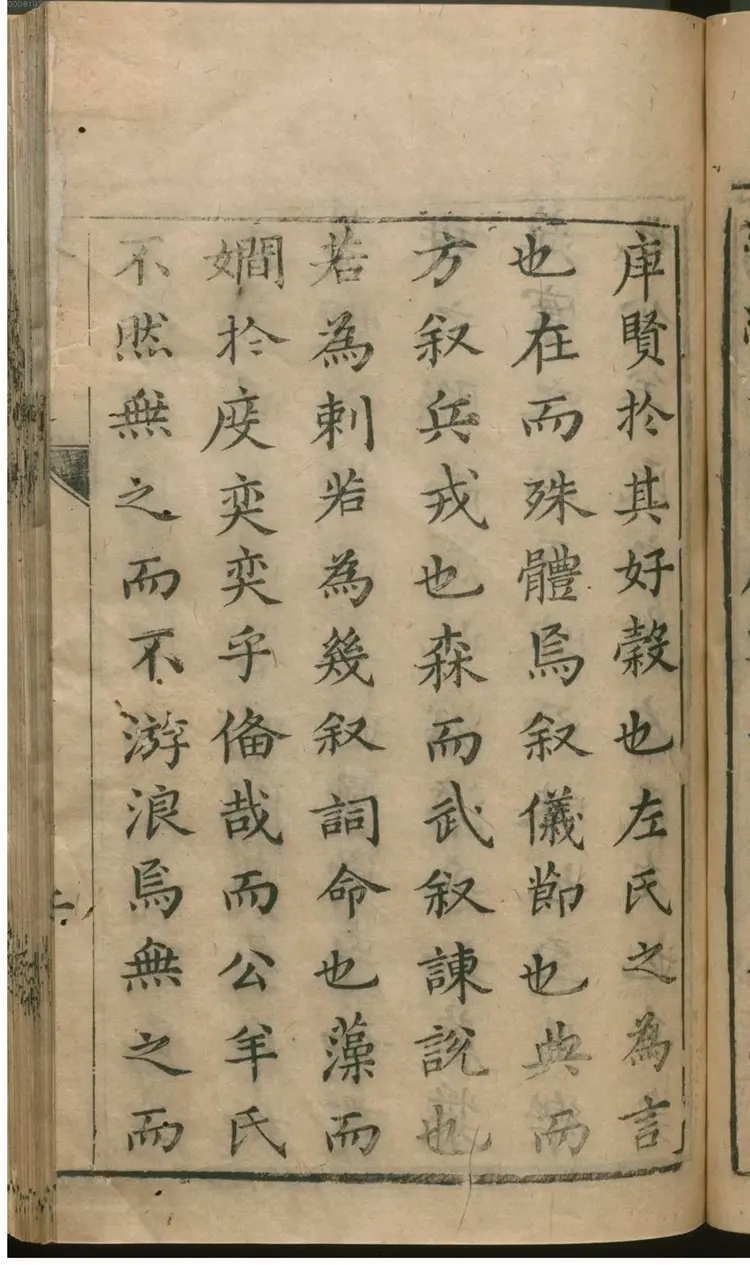 庳賢於其好穀也左氏之為言
也在而殊體焉叙儀節也典而
方叙兵戎也森而武叙諫說也
若為剌若為幾叙詞命也藻而
嫺於度奕奕乎俻哉而公羊氏
不然無之而不游浪焉無之而